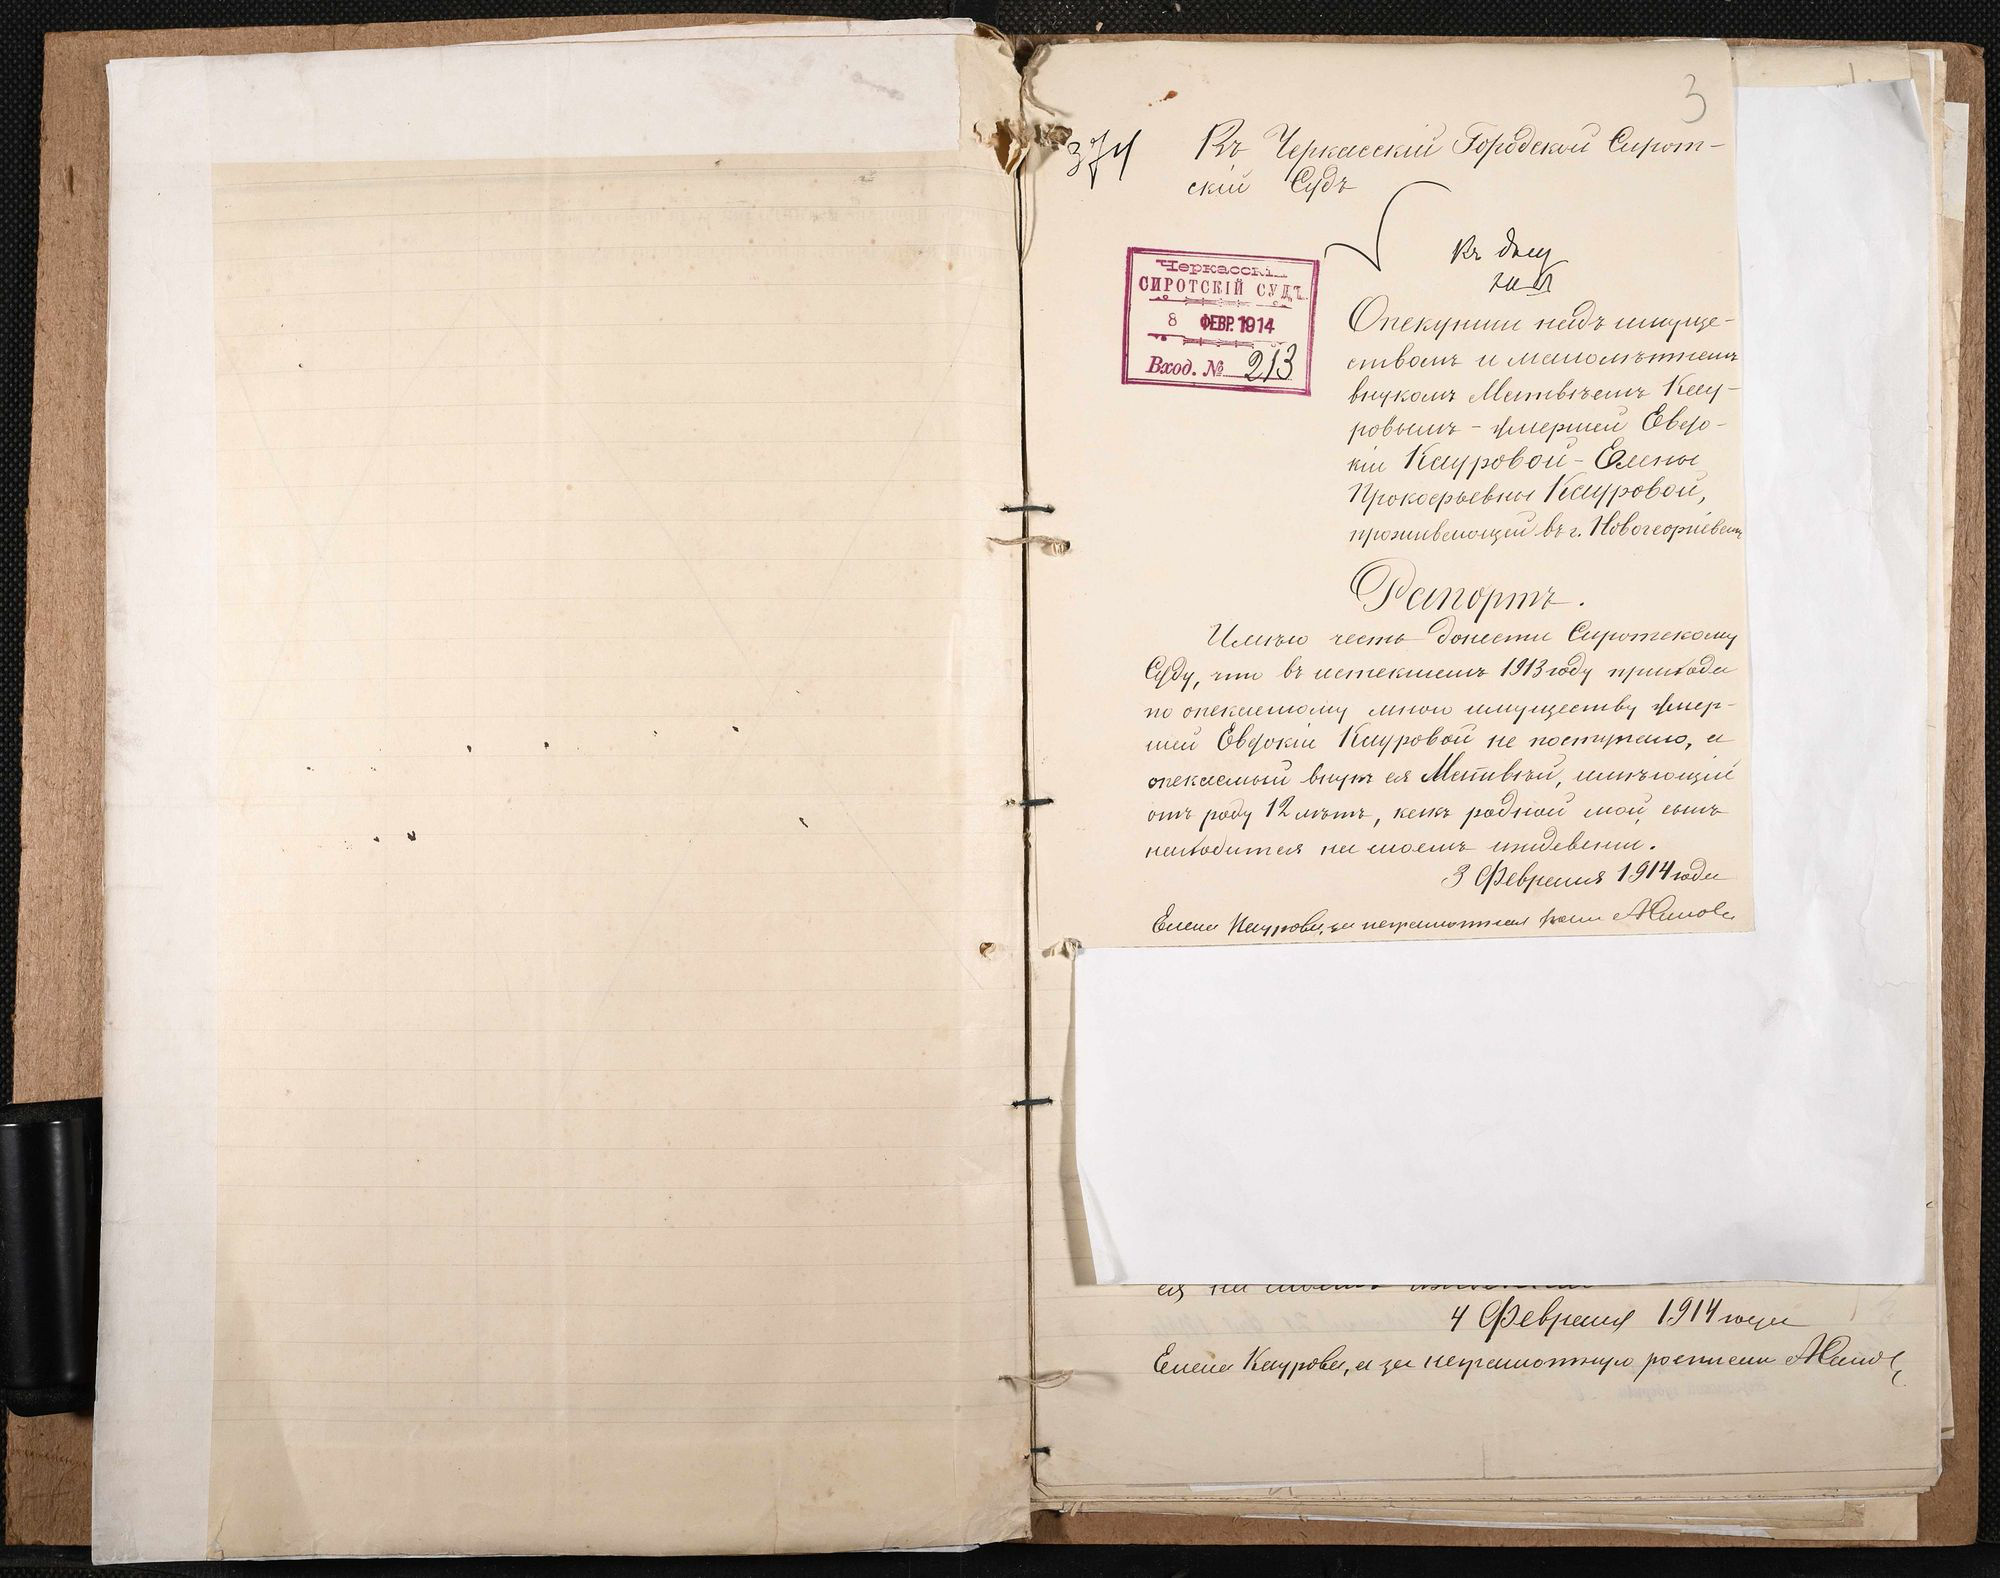 3
374
Въ Черкасскій Городской Сирот-
скій Судъ
Къ дѣлу
Черкасскі
СИРОТСКІЙ СУДЪ
8 ФЕВР. 1914
Вход. № 213
Опекунши надъ имуще-
ствомъ и малолѣтнемъ
внукомъ Матвѣемъ Кау-
ровымъ - умершей Евдо-
кіи Кауровой - Елены
Прокофьевны Кауровой,
проживающей въ г. Новогеоргіевскѣ
Рапортъ.
Имѣю честь донести Сиротскому
Суду, что въ истекшемъ 1913 году прихода
по опекаемому мною имуществу умер-
шей Евдокіи Кауровой не поступало, а
опекаемый внукъ ея Матвѣй, имѣющій
отъ роду 12 лѣтъ, какъ родной мой сынъ
находится на моемъ иждевеніи.
3 Февраля 1914 года
Елена Каурова, за неграмотная
ея на моемъ иждевеніи
4 Февраля 1914 года
Елена Каурова, а за неграмотную росписал